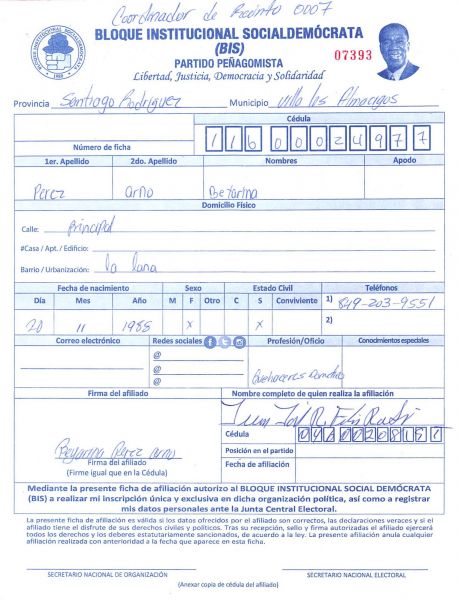 Coordinador de Recinto 0007
BLOQUE INSTITUCIONAL SOCIALDEMÓCRATA
(BIS)
PARTIDO PEÑAGOMISTA
Libertad, Justicia, Democracia y Solidaridad
07393
Provincia Santiago Rodriguez Municipio Villa los Almacigos
Cédula
Número de ficha 11600024977
1er. Apellido 2do. Apellido Nombres Apodo
Perez arno Beyarina
Domicilio Físico
Calle: principal
#Casa / Apt. / Edificio:
Barrio / Urbanización: la lana
Fecha de nacimiento Sexo Estado Civil Teléfonos
Día Mes Año M F Otro C S Conviviente 1) 849-203-9551
20 11 1985 X X 2)
Correo electrónico Redes sociales Profesión/Oficio Conocimientos especiales
@
@
@
Quehaceres Domesticos
Firma del afiliado Nombre completo de quien realiza la afiliación
Cédula
Beyarina Perez arno
Posición en el partido
Firma del afiliado
(Firme igual que en la Cédula)
Fecha de afiliación
Mediante la presente ficha de afiliación autorizo al BLOQUE INSTITUCIONAL SOCIAL DEMÓCRATA
(BIS) a realizar mi inscripción única y exclusiva en dicha organización política, así como a registrar
mis datos personales ante la Junta Central Electoral.
La presente ficha de afiliación es válida si los datos ofrecidos por el afiliado son correctos, las declaraciones veraces y si el
afiliado tiene el disfrute de sus derechos civiles y políticos. Tras su recepción, sello y firma autorizadas el afiliado ejercerá
todos los derechos y los deberes estatutariamente sancionados, de acuerdo a la ley. La presente afiliación anula cualquier
afiliación realizada con anterioridad a la fecha que aparece en esta ficha.
SECRETARIO NACIONAL DE ORGANIZACIÓN SECRETARIO NACIONAL ELECTORAL
(Anexar copia de cédula del afiliado)